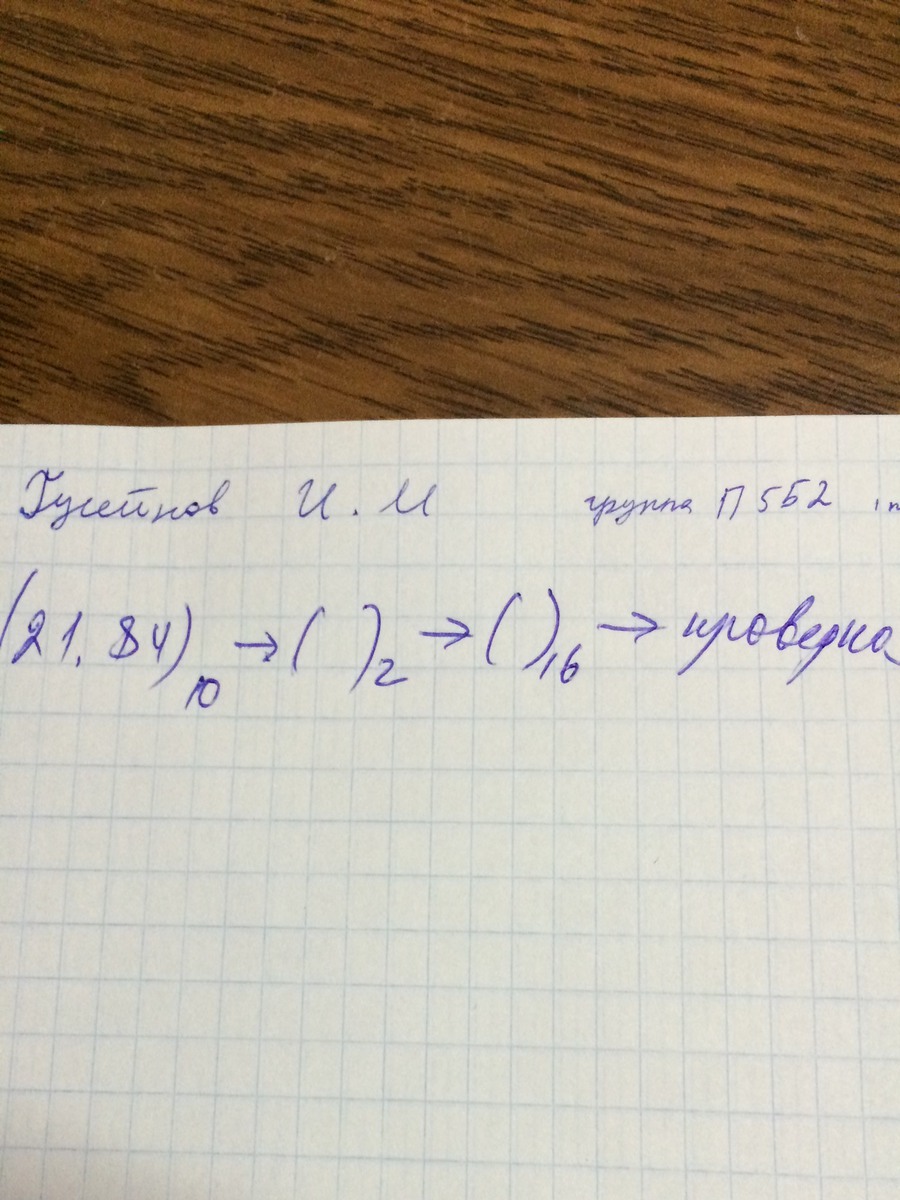 Гусейнов И.М группа П552
(21,84)10 → ( )2 → ( )16 → проверка